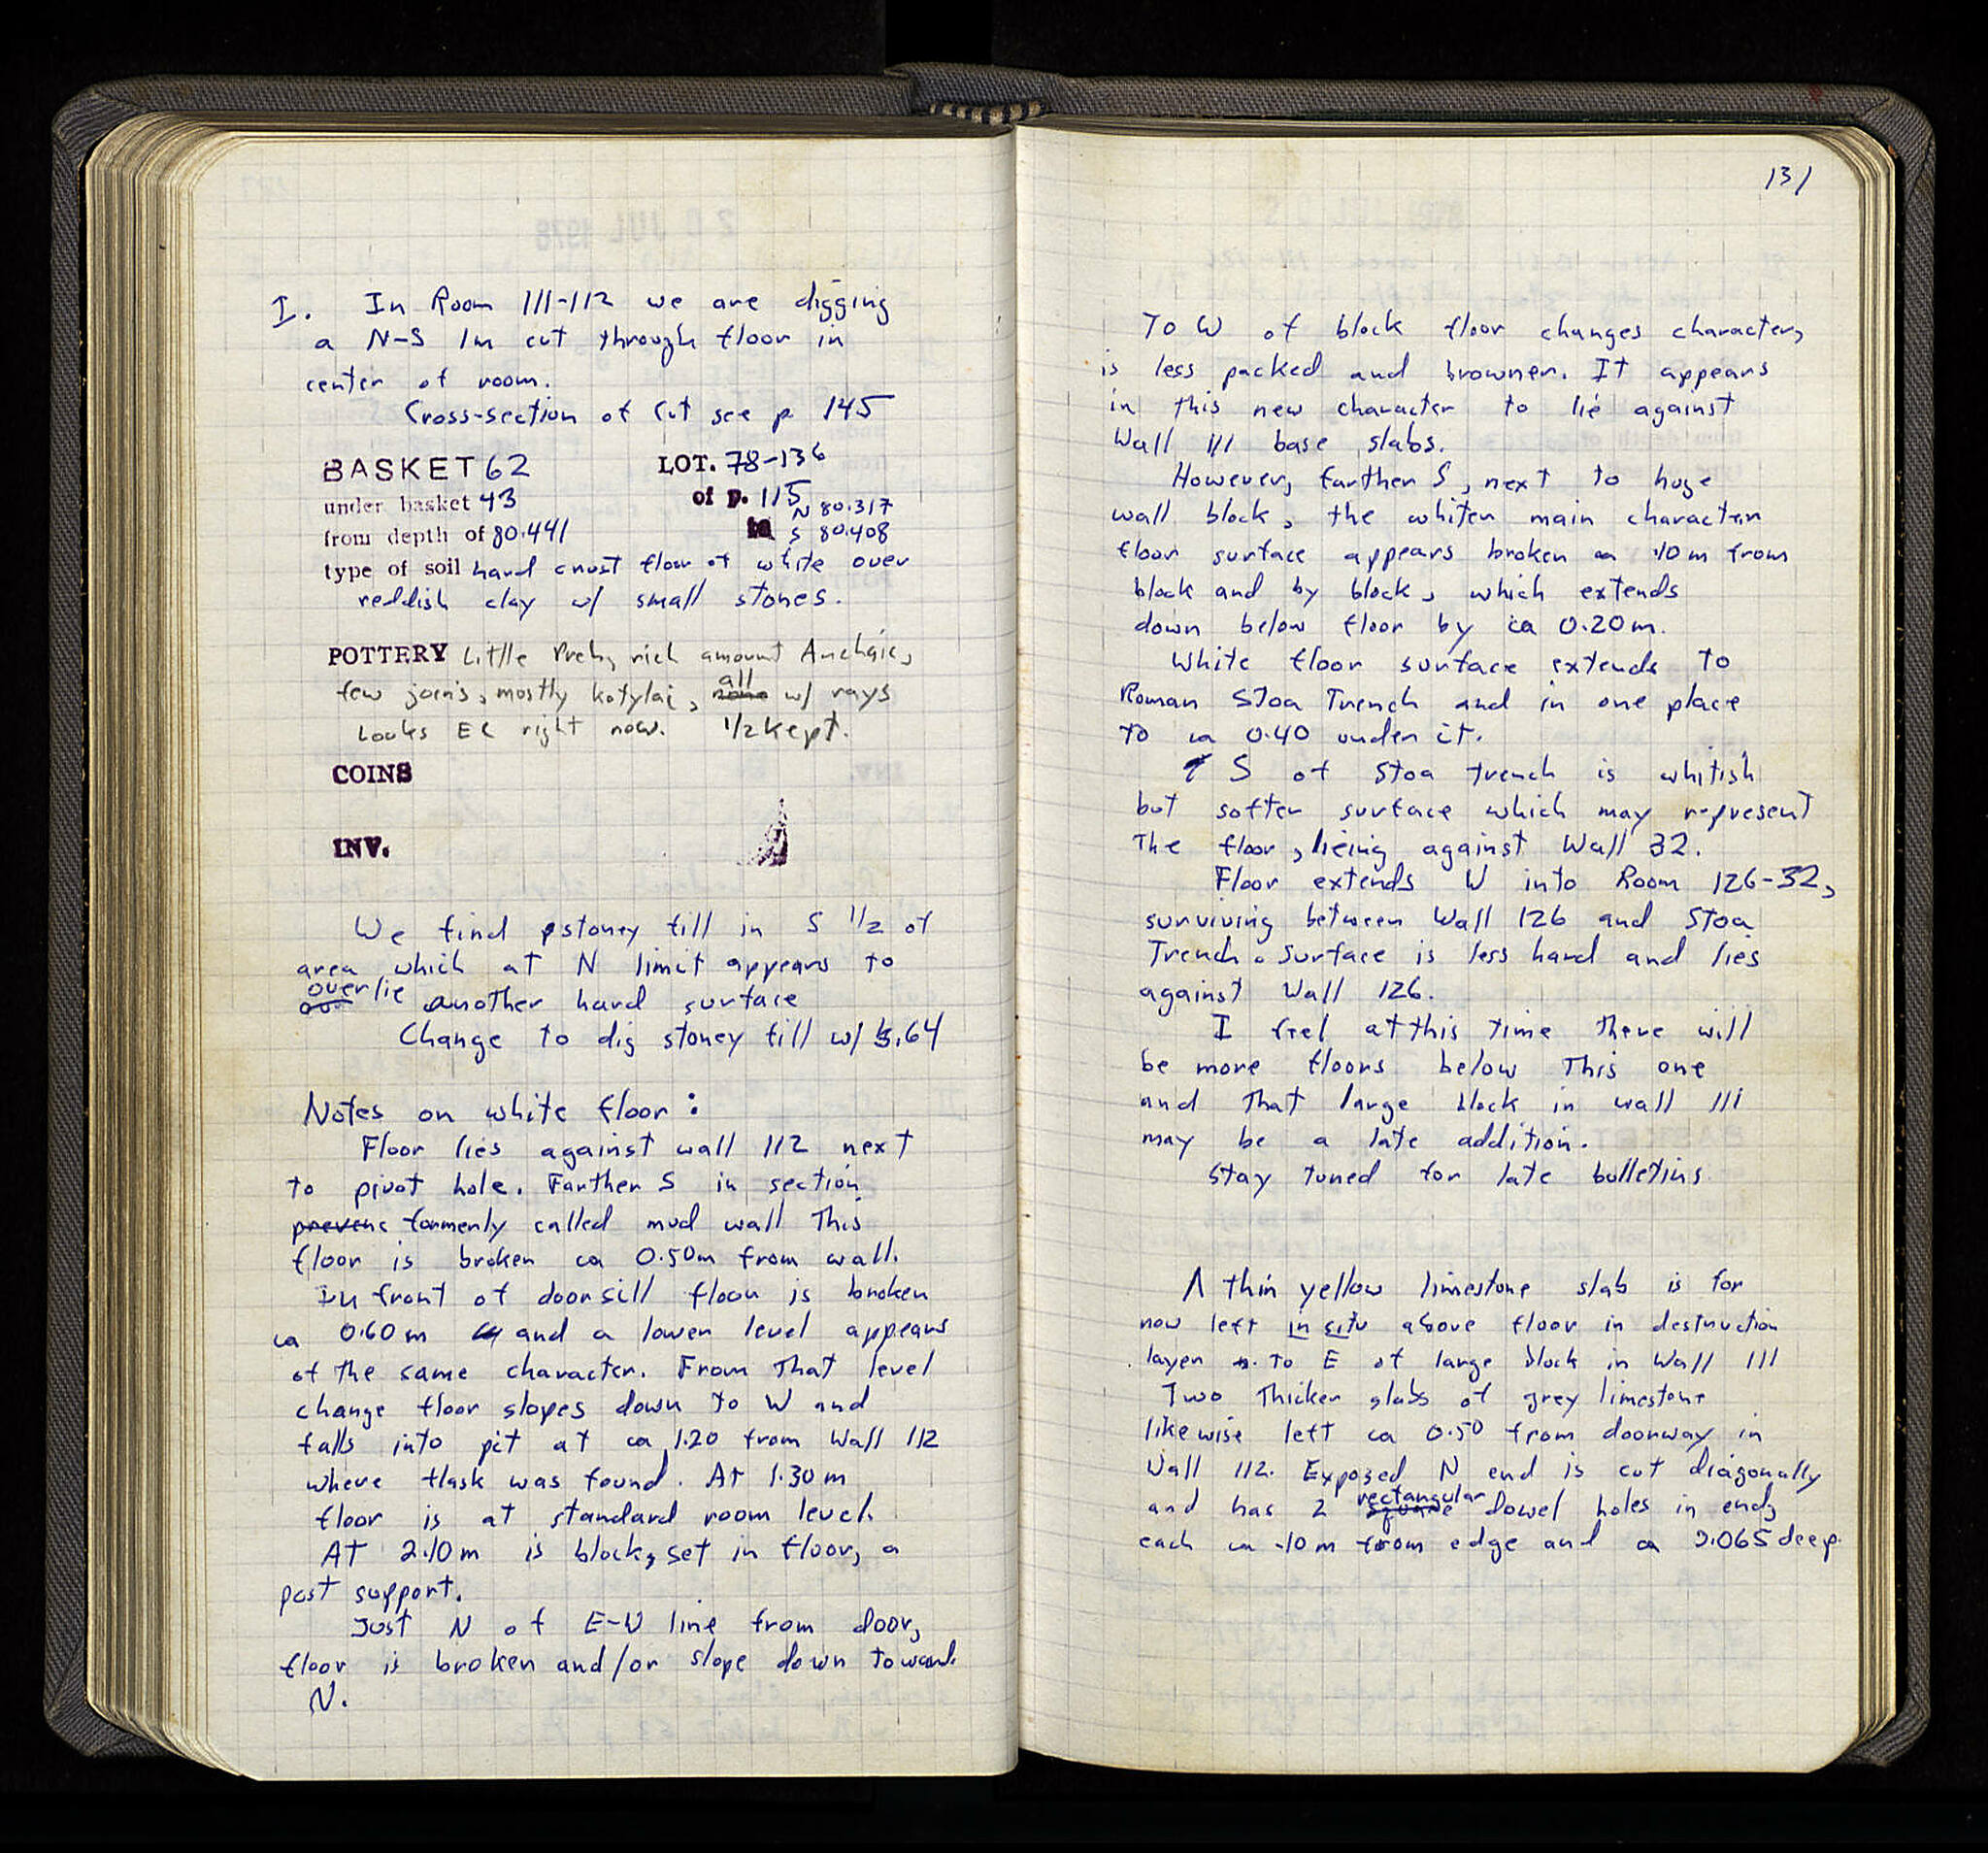 I. In Room 111-112 we are digging
a N-S 1m cut through floor in
center of room.
Cross-section of Cut see p 145
BASKET 62 LOT. 78-136
under basket 43 of p. 115
from depth of 80.441 to N 80.317
S 80.408
type of soil hard crust floor of white over
reddish clay w/ small stones.
POTTERY Little Preh, rich amount Archaic,
few joins, mostly kotylai, all w/ rays
Looks EC right now. 1/2 kept.
COINS
INV.
We find stoney fill in S 1/2 of
area which at N limit appears to
overlie another hard surface
Change to dig stoney fill w/ b.64
Notes on white floor:
Floor lies against wall 112 next
to pivot hole. Farther S in section
formerly called mud wall This
floor is broken ca 0.50m from wall.
In front of doorsill floor is broken
ca 0.60m and a lower level appears
of the same character. From That level
change floor slopes down to W and
falls into pit at ca 1.20 from Wall 112
where flask was found. At 1.30m
floor is at standard room level.
AT 2.10m is block, set in floor, a
post support.
Just N of E-W line from door,
floor is broken and/or slope down toward
N.
131
To W of block floor changes character,
is less packed and browner. It appears
in this new character to lie against
Wall 111 base slabs.
However, farther S, next to huge
wall block, the whiter main character
floor surface appears broken ca .10m from
block and by block, which extends
down below floor by ca 0.20m.
White floor surface extends to
Roman Stoa Trench and in one place
to ca 0.40 under it.
S of Stoa trench is whitish
but softer surface which may represent
The floor, lieing against Wall 32.
Floor extends W into Room 126-32,
surviving between Wall 126 and Stoa
Trench. Surface is less hard and lies
against Wall 126.
I feel at this time there will
be more floors below This one
and That large block in wall 111
may be a late addition.
Stay tuned for late bulletins
A thin yellow limestone slab is for
now left in situ above floor in destruction
layer to E of large block in Wall 111
Two Thicker slabs of grey limestone
likewise left ca 0.50 from doorway in
Wall 112. Exposed N end is cut diagonally
and has 2 rectangular dowel holes in end,
each ca .10m from edge and ca 0.065 deep.